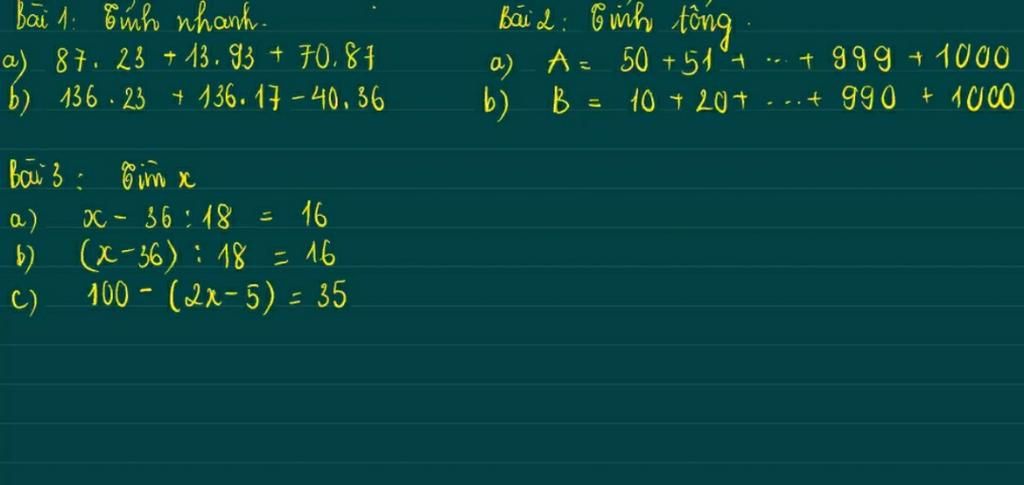 Bài 1: Tính nhanh.
a) 87. 23 + 13. 93 + 70. 87
b) 136 . 23 + 136. 17 - 40. 36
Bài 2: Tính tổng.
a) A = 50 + 51 + ... + 999 + 1000
b) B = 10 + 20 + ... + 990 + 1000
Bài 3: Tìm x
a) x - 36 : 18 = 16
b) (x - 36) : 18 = 16
c) 100 - (2x - 5) = 35